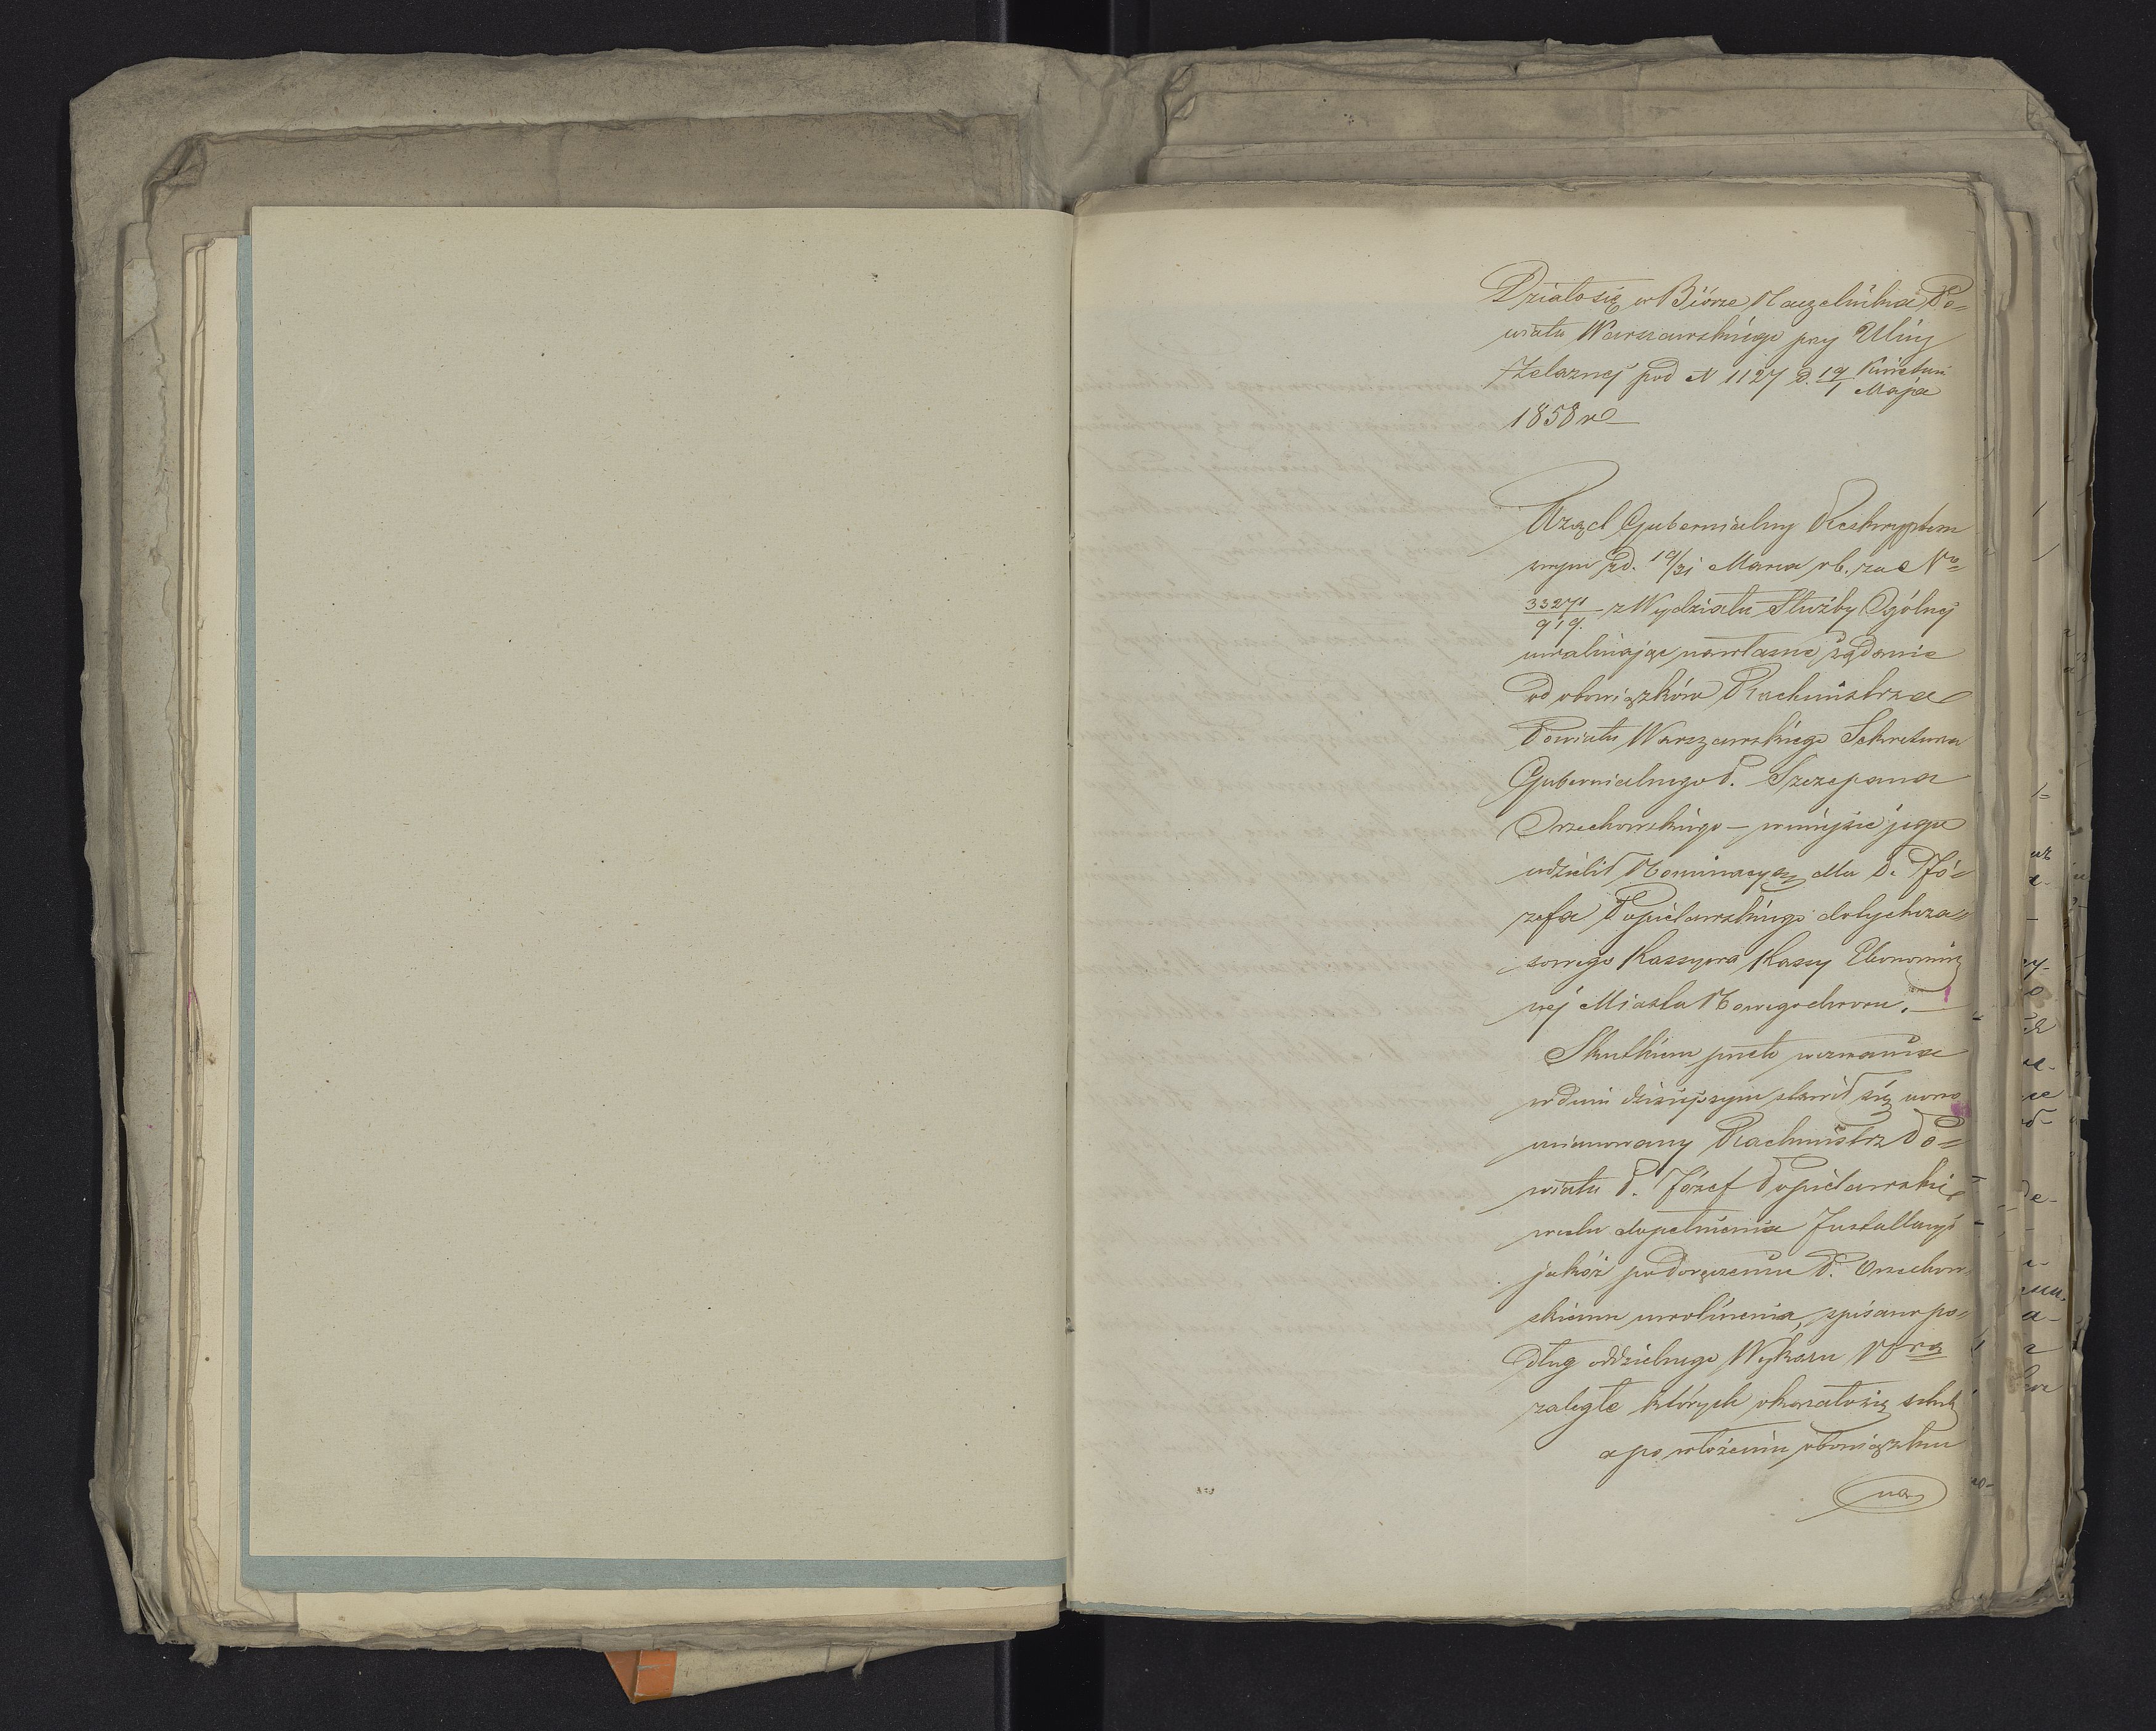 Działo się w Biórze Naczelnika Po=
wiatu Warszawskiego przy Ulicy
Żelaznej pod N 1127 d. 19/1 Kwietnia Maja
1858 r.
Rząd Gubernialny Reskryptem
swym z d. 19/31 Marca r.b. za Nr
33271/919. z Wydziału Służby Ogólnej
uwalniając na własne żądanie
od obowiązków Rachmistrza
Powiatu Warszawskiego Sekretarza
Gubernialnego P. Szczepana
Orzechowskiego – w miejsce jego
udzielił Nominacyą dla P. Jó=
zefa Popielawskiego dotychcza=
sowego Kassyera Kassy Ekonomicz
nej Miasta Nowegodworu. –
Skutkiem przeto wezwania
w dniu dzisiejszym stawił się nowo
mianowany Rachmistrz Po=
wiatu P. Józef Popielawski
w celu dopełnienia Installacyi
jakoż po doręczeniu P. Orzechow
skiemu uwolnienia, spisano po=
dług oddzielnego Wykazu Nra
zaległe których okazało się sztuk
a po włożeniu obowiązku
na